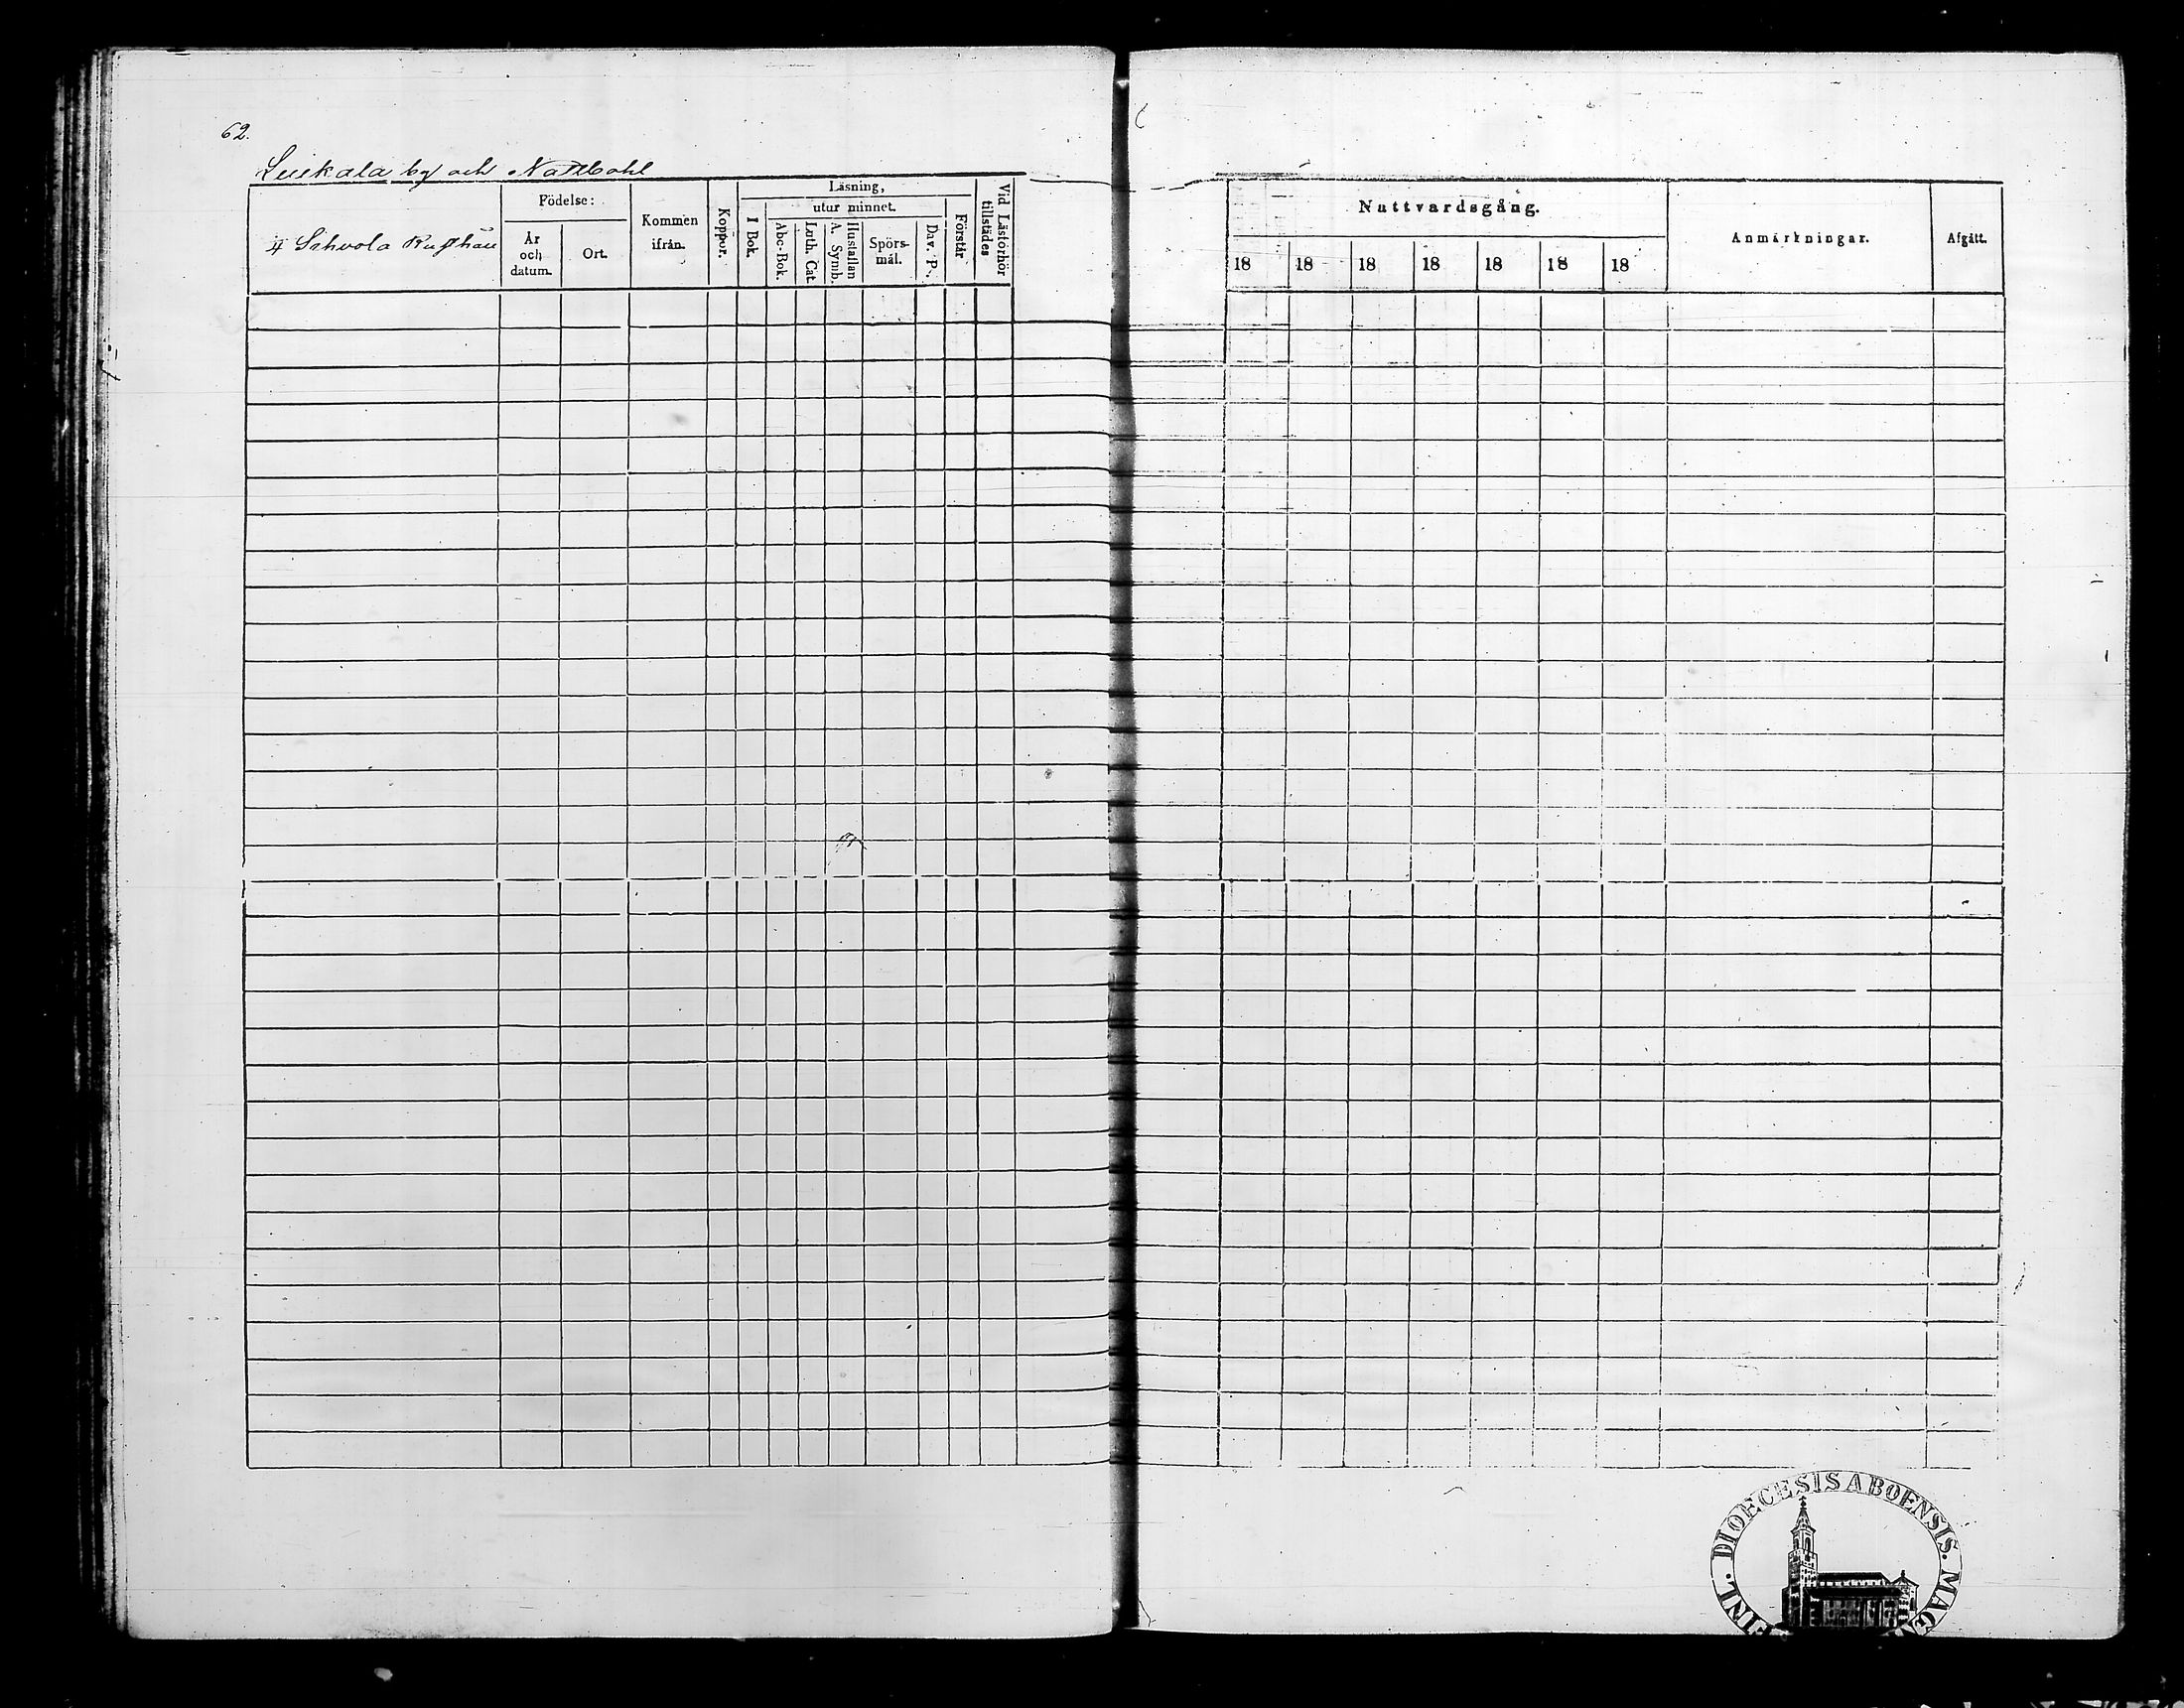 62.
Leikala by och Nattbohl
4 Sihvola Rusthåll
Födelse:
År
och
datum.
Ort.
Kommen
ifrån.
Koppor.
Läsning,
I Bok.
utur minnet.
Abc-Bok.
Luth. Cat.
Hustaflan
A. Symb.
Spörs-
mål.
Dav. P.
Förstår
Vid Läsförhör
tillstädes
Nattvardsgång.
18 18 18 18 18 18 18
Anmärkningar.
Afgått.
DIOECESIS ABOENSIS. MAG
FINL.